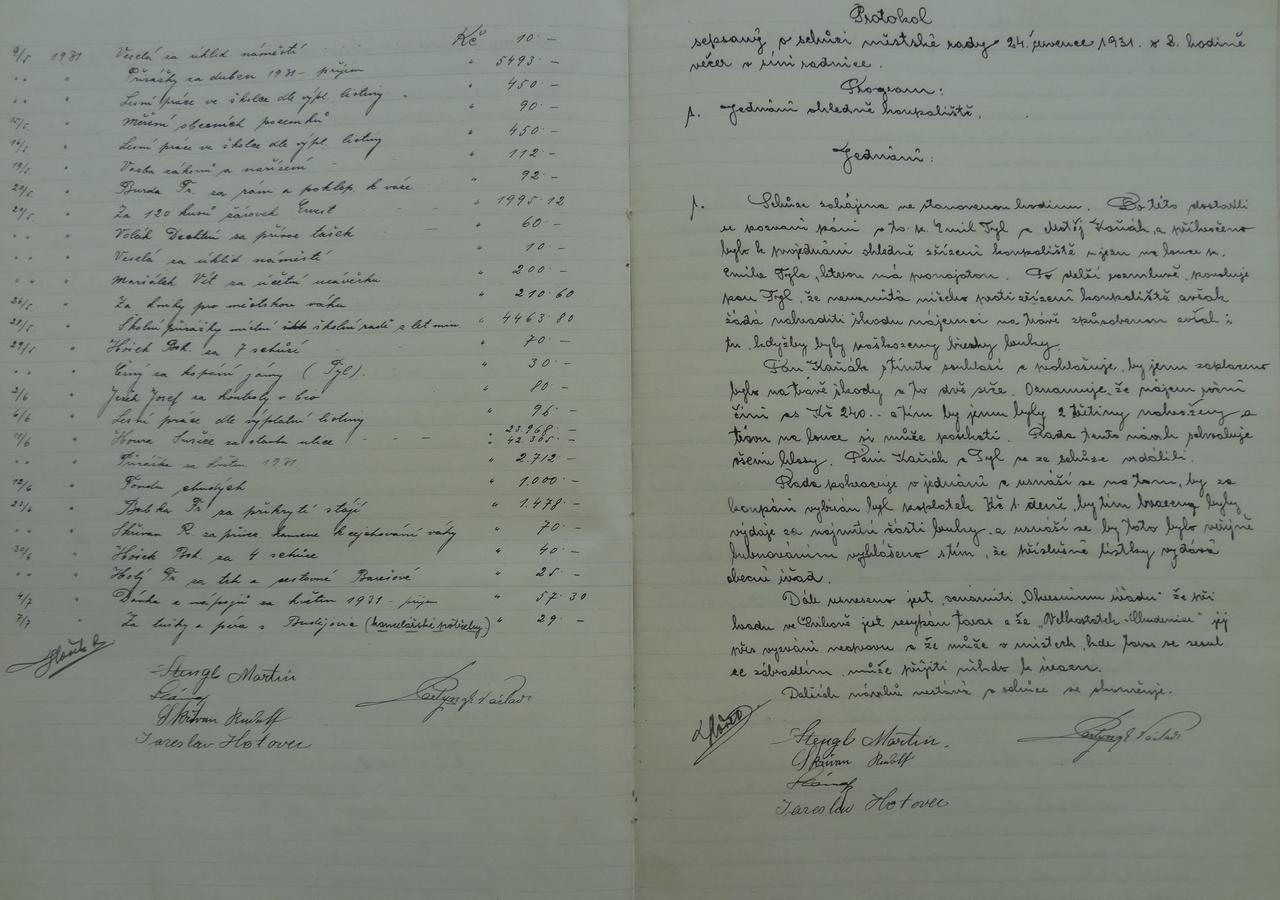 9/5 1931 Veselá za úklid náměstí Kč 10.–
" " Přirážky za duben 1931 – příjem 5493.–
" " Lesní práce ve školce dle výpl. listiny " 450.–
" Měření obecních pozemků " 90.–
16/5 " Lesní práce ve školce dle výpl. listiny " 450.–
19/5 " Vazba zákonů a nařízení " 112.–
20/5 " Burda Fr. za rám a poklop k váze " 92.–
" Za 120 kusů žárovek " 1995.12
" " Volák Dechtní za přívoz tašek " 60.–
" Veselá za úklid náměstí " 10.–
" Maršálek Vít za účetní uzávěrku " 200.–
26/5 " Za kruhy pro městskou váhu " 210.60
" Školní přirážky místní školní radě z let min. " 4463.80
29/5 " Boh. za 7 schůzí " 70.–
" Černý za kopání jámy (Tyl). " 30.–
2/6 " Josef za kontroly v bio " 80.–
4/6 " Lesní práce dle výplatní listiny " 96.–
" Sušice za stavbu ulice " 23.968.–
" 42.305.–
" Přirážka za květen 1931. " 2.712.–
12/6 " Fondu chudých " 1.000.–
" Fr. za přikrytí stájí " 1.478.–
" Skřivan R. za přívoz kamene k cejchování váhy " 70.–
" Boh. za 4 schůze " 40.–
" " Holý Fr. za trh a cestovné " 25.–
4/7 " Dávka z nápojů za květen 1931 – příjem " 57.30
7/7 " Za tužky a péra z Budějovic (kancelářské potřeby) " 29.–
Stengl Martin
Skřivan Rudolf
Jaroslav Hotovec
Protokol
sepsaný, o schůzi městské rady 24. července 1931. v 8. hodině
večer v síni radnice.
Program:
1. Jednání ohledně koupaliště.
Jednání:
1. Schůze zahájena ve stanovenou hodinu. Do této dostavili
se pozvaní páni a to: p. Emil Tyl a Matěj Kaňák, a přikročeno
bylo k projednání ohledně zřízení koupaliště v jezu na louce p.
Emila Tyla, kterou má pronajatou. Po delší rozmluvě, povoluje
pan Tyl, že nenamítá ničeho proti zřízení koupaliště avšak
žádá nahraditi škodu nájemci na trávě způsobenou avšak i
tu, kdyžby byly poškozeny břehy louky.
Pan Kaňák s tímto souhlasí a prohlašuje, by jemu zaplaceno
bylo na trávě škody a to dvě. Oznamuje, že nájem roční
činí as Kč 240.– a tím by jemu byly 2 třetiny nahraženy a
trávu na louce si může posekati. Rada tento návrh schvaluje
všemi hlasy. Páni Kaňák a Tyl se ze schůze vzdálili.
Rada pokračuje v jednání a usnáší se na tom, by za
koupání vybírán byl poplatek Kč 1 denně, by tím hrazeny byly
výdaje za najmutí části louky, a usnáší se by toto bylo veřejně
bubnováním vyhlášeno s tím, že příslušné lístky vydává
obecní úřad.
Dále usneseno jest, oznámiti „Okresnímu úřadu" že při
hradu ve jest sesypán taras a že „Velkostatek Chudenice" jej
přes vyzvání neopravu a že může v místech, kde taras se sesul
se zábradlím, může přijíti někdo k úrazu.
Dalších návrhů nestává a schůze se skončuje.
Stengl Martin.
Skřivan Rudolf
Jaroslav Hotovec